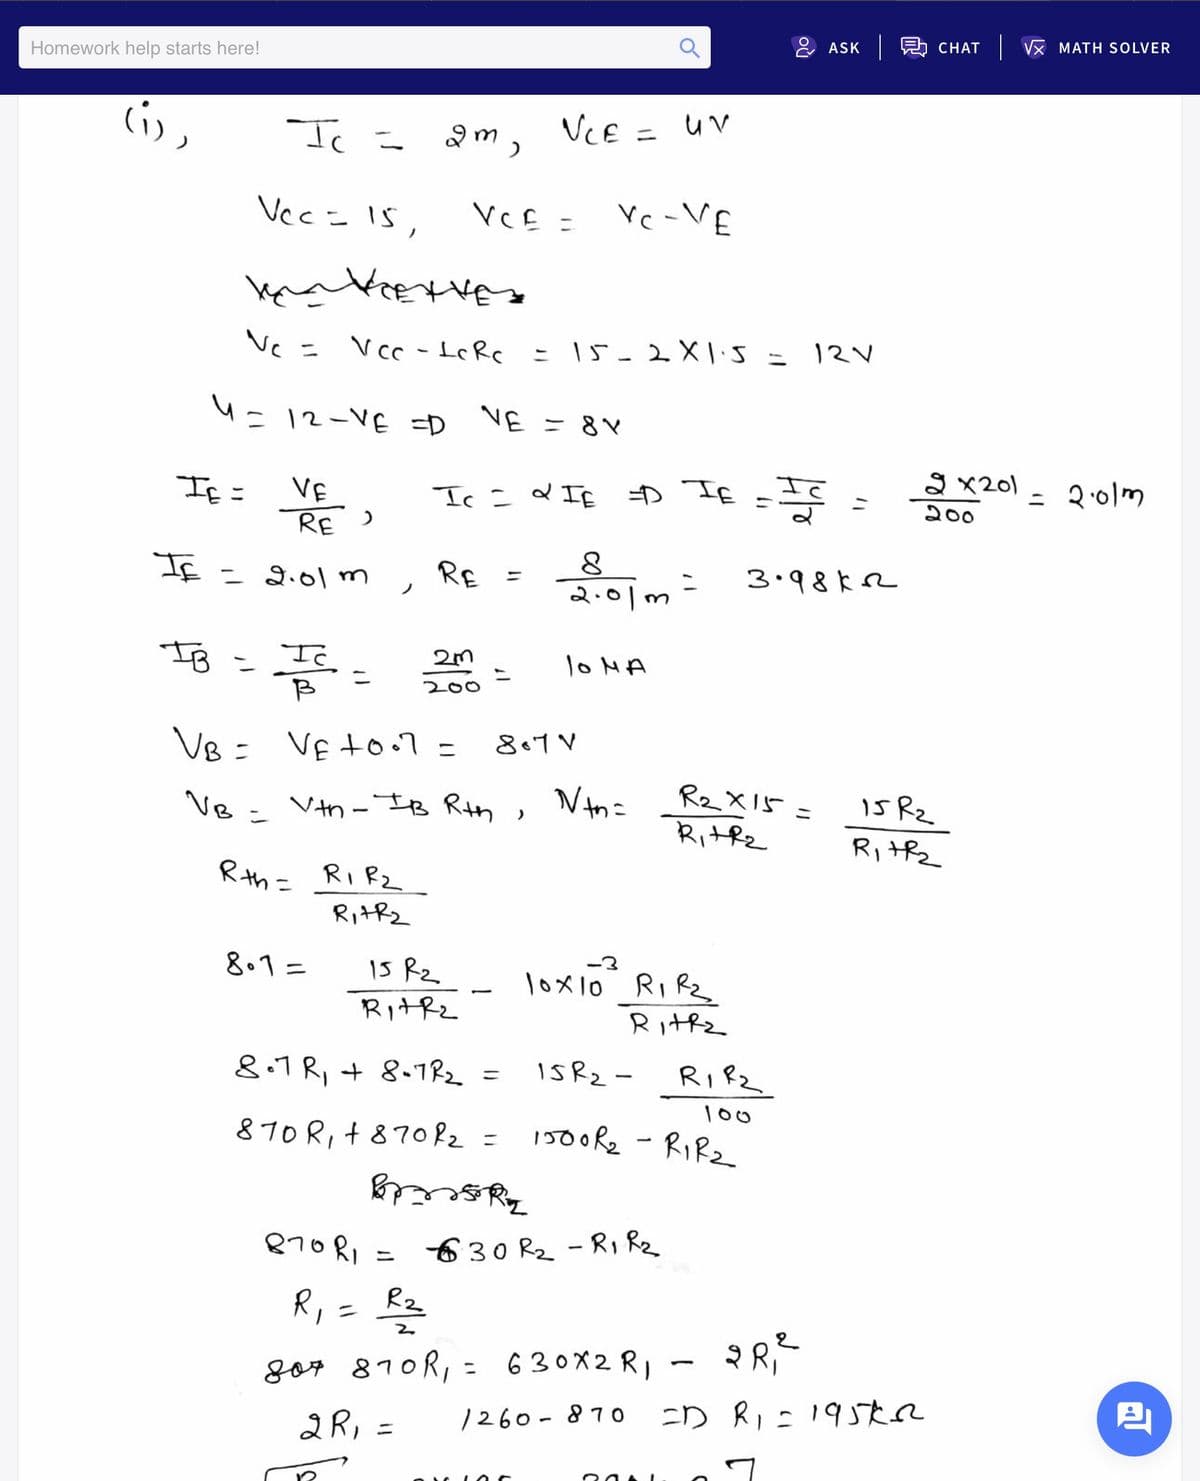 Homework help starts here!
ASK
CHAT
MATH SOLVER
(i), Ic = 2m, VCE = 4V
Vcc = 15, VCE = Vc - VE
Vc = Vcc - IcRc = 15 - 2 X 1.5 = 12V
4 = 12 - VE => VE = 8V
IE = VE/RE, Ic = αIE => IE = Ic/α = 2 x 201/200 = 2.01m
IE = 2.01m, RE = 8/2.01m = 3.98kΩ
IB = Ic/β = 2m/200 = 10 μA
VB = VE + 0.7 = 8.7V
VB = Vth - IB Rth, Vth = R2 X 15/R1+R2 = 15 R2/R1+R2
Rth = R1 R2/R1+R2
8.7 = 15 R2/R1+R2 - 10x10^-3 R1 R2/R1+R2
8.7 R1 + 8.7R2 = 15R2 - R1 R2/100
870R1 + 870R2 = 1500R2 - R1R2
870 R1 = 630 R2 - R1 R2
R1 = R2/2
870R1 = 630X2 R1 - 2R1^2
2R1 = 1260 - 870 => R1 = 195kΩ